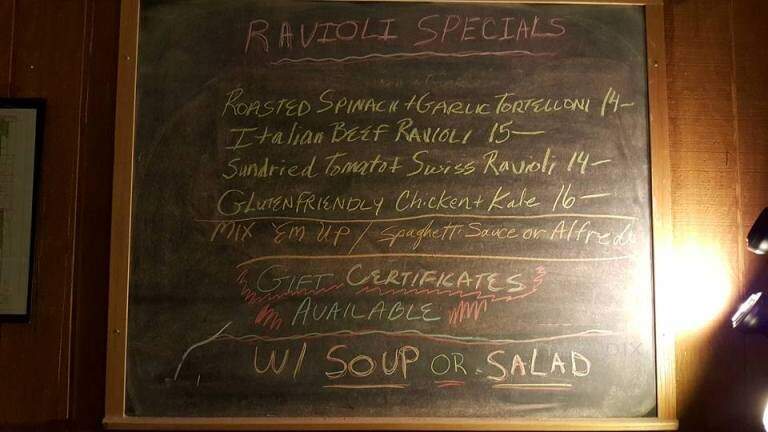 RAVIOLI SPECIALS
ROASTED SPINACH + GARLIC TORTELLONI 14-
Italian BEEF RAVIOLI 15-
Sundried Tomato + Swiss Ravioli 14-
GLUTENFRIENDLY Chicken + Kale 16-
MIX 'EM UP / Spaghetti Sauce or Alfredo
GIFT CERTIFICATES
AVAILABLE
W/ SOUP OR SALAD